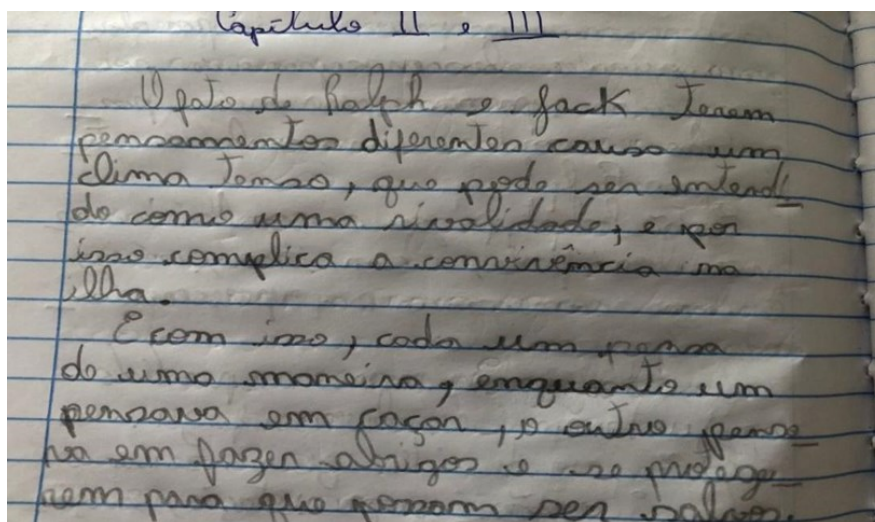 Capítulo II e III
O fato de Ralph e Jack terem
pensamentos diferentes causa um
clima tenso, que pode ser entendi_
do como uma rivalidade, e por
isso complica a convivência na
ilha.
E com isso, cada um pensa
de uma maneira, enquanto um
pensava em caçar, o outro pensa_
va em fazer abrigos e se protege_
rem para que possam ser salvos.